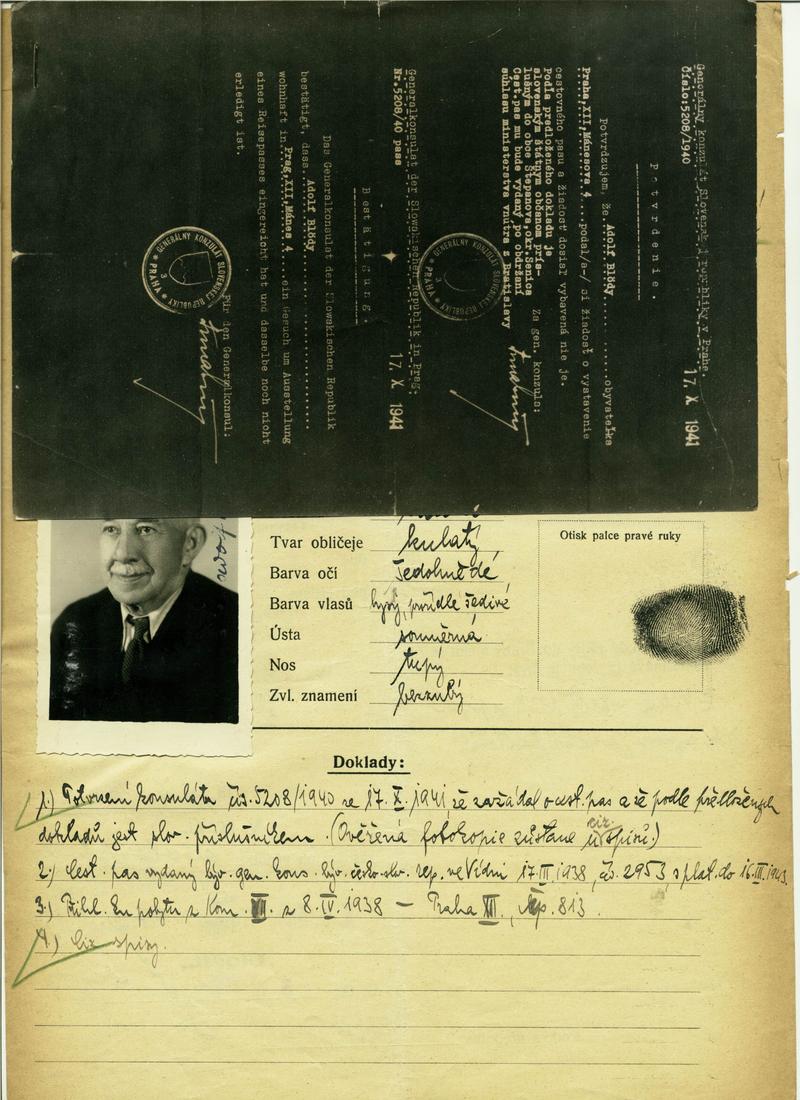 Generálny konzulát Slovenskej republiky v Prahe.
Číslo:5208/1940
17. X 1941
Potvrdenie.
Potvrdzujem, že Adolf Blödy obyvateľka
Praha,XII,Mánesova 4 podal/a-/ si žiadosť o vystavenie
cestovného pasu a žiadosť dosiaľ vybavená nie je.
Podľa predloženého dokladu je
slovenským štátnym občanom prís-
lušným do obce Štepanova,okr.Senica
Cest.pas mu bude vydaný po obdržaní
súhlasu ministerstva vnútra z Bratislavy
Za gen. konzula:
GENERÁLNY KONZULÁT SLOVENSKEJ REPUBLIKY
3
* PRAHA *
Generalkonsulat der Slowakischen Republik in Prag.
Nr.5208/40 pass
17. X 1941
Bestätigung.
Das Generalkonsulat der Slowakischen Republik
bestätigt, dass Adolf Blödy
wohnhaft in Prag,XII,Mánes 4 ein Gesuch um Ausstellung
eines Reisepasses eingereicht hat und dasselbe noch nicht
erledigt ist.
Für den Generalkonsul:
GENERÁLNY KONZULÁT SLOVENSKEJ REPUBLIKY
3
* PRAHA *
Tvar obličeje kulatý
Barva očí šedohnědé
Barva vlasů lysý, šedivé
Ústa souměrná
Nos tupý
Zvl. znamení bezzubý
Otisk palce pravé ruky
Doklady:
1.) Potvrzení konsulátu čís. 5208/1940 ze 17. X. 1941, že zažádal o cest. pas a že podle předložených
dokladů jest slov. příslušníkem. (Ověřená fotokopie zůstane u ciz. spisů.)
2.) Cest. pas vydaný býv. gen. kons. býv. česko-slov. rep. ve Vídni 17.III.1938, čís. 2953, s plat. do 16.III.1943.
3.) Přihl. ku pobytu z Kom. XII. z 8.IV.1938 – Praha XII., čp. 813.
4.) Ciz. spisy.